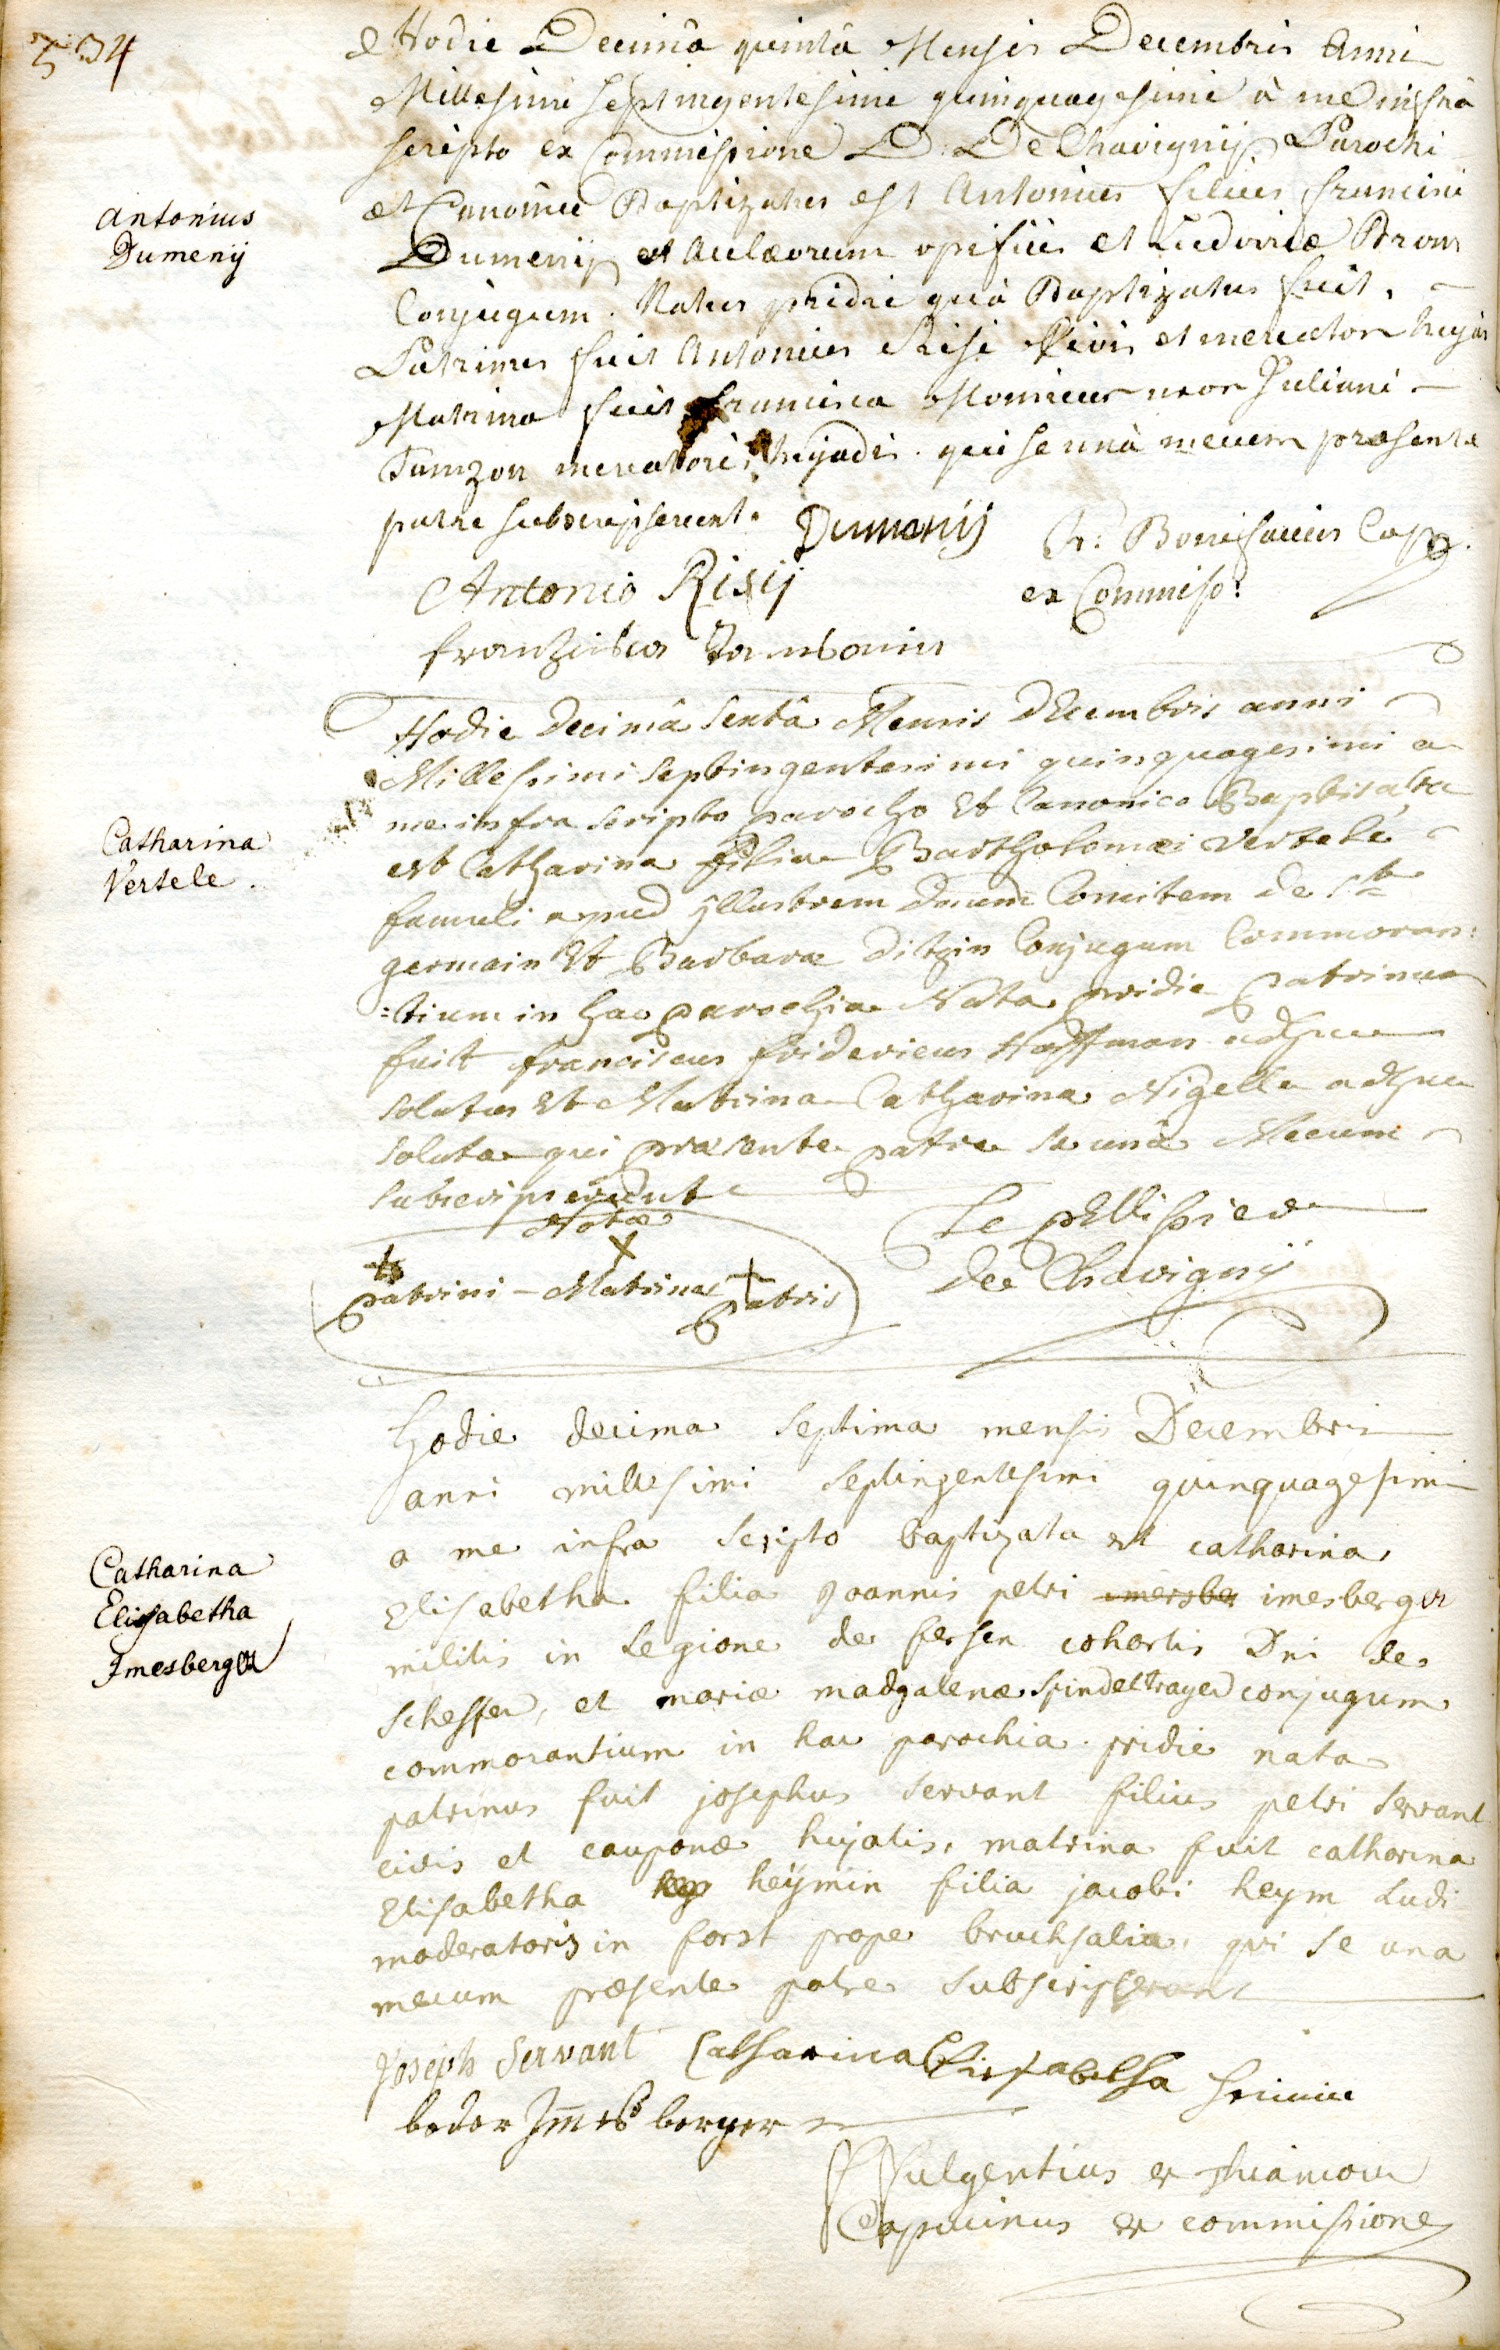 534
Hodie Decimâ quintâ Mensis Decembris Anni
Millesimi septingentesimi quinquagesimi à me infrà
scripto ex Commissione D: De Chavignij Parochi
et Canonici Baptizatus est Antonius filius francisci
Antonius
Dumenij
Dumenij et Aulæorum opificis et Ludovicæ Bron
Conjugum. Natus pridie quà Baptizatus fuit.
Patrinus fuit Antonius Risi Civis et mercator hujas
Matrina fuit francisca Monieur uxor Juliani
mercatoris hujadis. qui se unà mecum præsente
patre subscripserunt. Dumenij fr: Bonifacius Cap.
Antonio Risij ex Commiss:
Hodie Decimâ Sextâ Mensis DEcembris anni
Millessimi Septingentesimi quinquagesimi a
me infra scripto parocho Et Canonico Baptisata
Catharina
Vertele.
est Catharina filia Bartholomæi Vertele
famuli apud jllustrem Dnum Comitem de St
germain Et Barbaræ Ditzin Conjugum Commoran:
:tium in hac parochia Nata pridie patrinus
fuit franciscus fridericus Hoffman adhuc
solutus Et Matrina Catharina Nigelle adhuc
soluta qui præsente patre se unâ Mecum
subscripserunt
Notæ
X
patrini - Matrinæ patris
Le pEllissier
de Chavignÿ
hodie decima septima mensis Decembris
anni millesimi septingentesimi quinquagesimi
a me infra scripto baptizata est catharina
Catharina
Elisabetha
Jmesberger
Elisabetha filia Joannis petri imesberger
militis in Legione de fersen cohortis Dni de
scheffer, et mariæ madgalenæ Spindeltrager conjugum
commorantium in hac parochia. pridie nata
patrinus fuit josephus servant filius petri servant
civis et cauponæ hujatis, matrina fuit catharina
Elisabetha heÿmin filia jacobi heym Ludi
moderatoris in forst prope bruchsalia, qui se una
mecum præsente patre subscripserunt
Joseph Servant Catharina Elisabetha
beder Jmesberger
Capucinus ex commissione